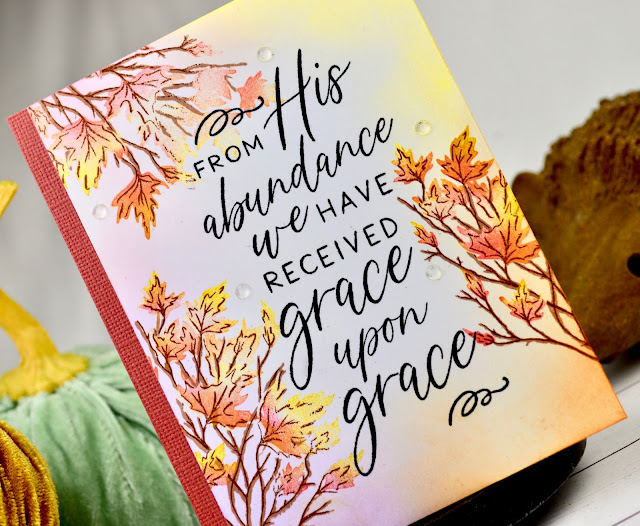 FROM His
abundance
we HAVE
RECEIVED
grace
upon
grace